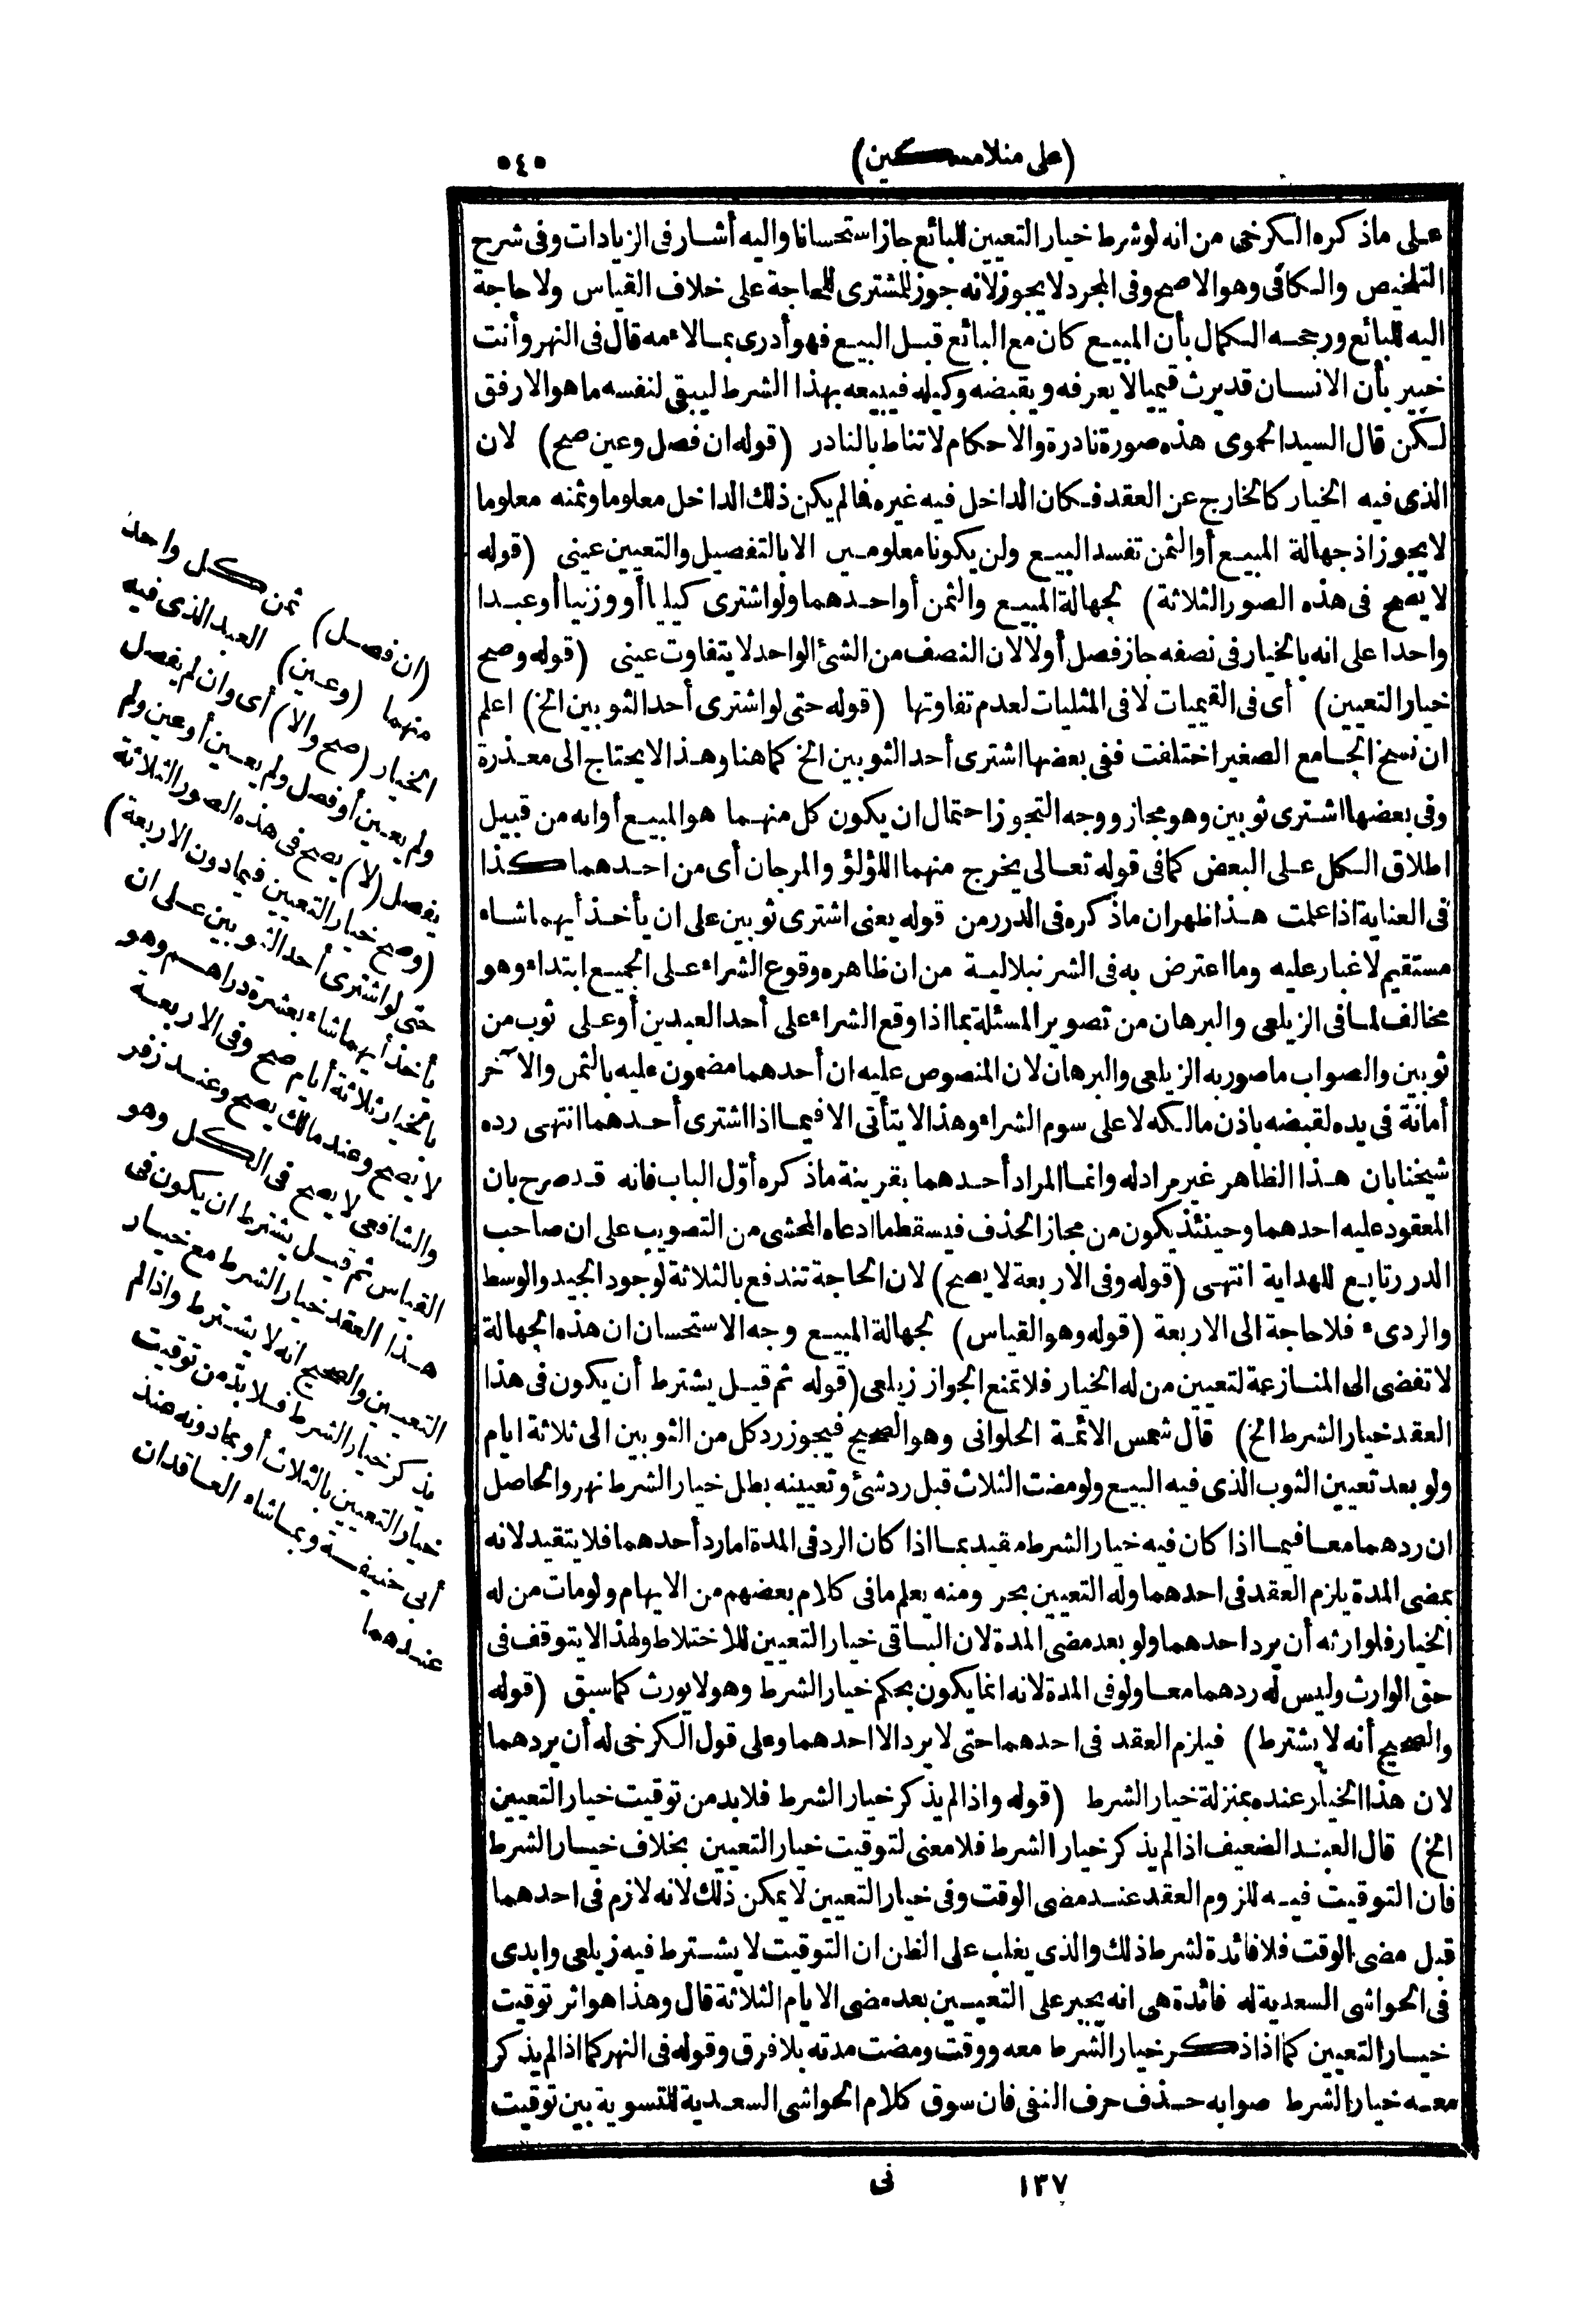 (على منلامسكين) ٥٤٥
على ماذكره الكرخى من انه لوشرط خيار التعيين للبائع جاز استحسانا واليه أشار فى الزيادات وفى شرح
التلخيص والكافى وهو الاصح وفى المجرد لايجوز لانه جوز للمشترى للحاجة على خلاف القياس ولا حاجة
اليه للبائع ورجحه الكمال بأن المبيع كان مع البائع قبل البيع فهو أدرى بما لاءمه قال فى النهر وأنت
خبير بأن الانسان قد يرث قيميا لا يعرفه ويقبضه وكيله فيبيعه بهذا الشرط ليبقى لنفسه ما هو الارفق
لكن قال السيد الحموى هذه صورة نادرة والاحكام لا تناط بالنادر (قوله ان فصل وعين صح) لان
الذى فيه الخيار كالخارج عن العقد فكان الداخل فيه غيره فالم يكن ذلك الداخل معلوما وثمنه معلوما
لايجوز اذ جهالة المبيع أو الثمن تفسد البيع ولن يكونا معلومين الا بالتفصيل والتعيين عينى (قوله
لا يصح فى هذه الصور الثلاثة) لجهالة المبيع والثمن أو احدهما ولو اشترى كيليا أو وزنيا أو عبدا
واحدا على انه بالخيار فى نصفه جاز فصل أولا لان النصف من الشئ الواحد لا يتفاوت عينى (قوله وصح
خيار التعيين) أى فى القيميات لا فى المثليات لعدم تفاوتها (قوله حتى لو اشترى أحد الثوبين الخ) اعلم
ان نسخ الجامع الصغير اختلفت ففى بعضها اشترى أحد الثوبين الخ كما هنا وهذا لا يحتاج الى معذرة
وفى بعضها اشترى ثوبين وهو مجاز ووجه التجوز احتمال ان يكون كل منهما هو المبيع أو انه من قبيل
اطلاق الكل على البعض كما فى قوله تعالى يخرج منهما اللؤلؤ والمرجان أى من احدهما كذا
فى العناية اذا علمت هذا ظهر ان ماذكره فى الدرر من قوله يعنى اشترى ثوبين على ان يأخذ أيهما شاء
مستقيم لاغبار عليه وما اعترض به فى الشرنبلالية من ان ظاهره وقوع الشراء على الجميع ابتداء وهو
مخالف لما فى الزيلعى والبرهان من تصوير المسئلة بما اذا وقع الشراء على أحد العبدين أو على ثوب من
ثوبين والصواب ما صور به الزيلعى والبرهان لان المنصوص عليه ان أحدهما مضمون عليه بالثمن والآخر
أمانة فى يده لقبضه باذن مالكه لا على سوم الشراء وهذا لا يتأتى الا فيما اذا اشترى أحدهما انتهى رده
شيخنا بان هذا الظاهر غير مراد له وانما المراد أحدهما بقرينة ماذكره أوّل الباب فانه قد صرح بان
المعقود عليه احدهما وحينئذ يكون من مجاز الحذف فيسقط ما ادعاه المحشى من التصويب على ان صاحب
الدرر تابع للهداية انتهى (قوله وفى الاربعة لا يصح) لان الحاجة تندفع بالثلاثة لوجود الجيد والوسط
والردىء فلا حاجة الى الاربعة (قوله وهو القياس) لجهالة المبيع وجه الاستحسان ان هذه الجهالة
لا تفضى الى المنازعة لتعيين من له الخيار فلا تمنع الجواز زيلعى (قوله ثم قيل يشترط أن يكون فى هذا
العقد خيار الشرط الخ) قال شمس الائمة الحلوانى وهو الصحيح فيجوز رد كل من الثوبين الى ثلاثة ايام
ولو بعد تعيين الثوب الذى فيه البيع ولو مضت الثلاث قبل رد شئ وتعيينه بطل خيار الشرط نهر والحاصل
ان ردهما معا فيما اذا كان فيه خيار الشرط مقيد بما اذا كان الرد فى المدة اما رد أحدهما فلا يتقيد لانه
بمضى المدة يلزم العقد فى احدهما وله التعيين بحر ومنه يعلم ما فى كلام بعضهم من الايهام ولو مات من له
الخيار فلوارثه أن يرد احدهما ولو بعد مضى المدة لان الباقى خيار التعيين للاختلاط ولهذا لا يتوقف فى
حق الوارث وليس له ردهما معا ولو فى المدة لانه انما يكون بحكم خيار الشرط وهو لا يورث كما سبق (قوله
والصحيح أنه لا يشترط) فيلزم العقد فى احدهما حتى لا يرد الا احدهما وعلى قول الكرخى له أن يردهما
لان هذا الخيار عنده بمنزلة خيار الشرط (قوله واذا لم يذكر خيار الشرط فلابد من توقيت خيار التعيين
الخ) قال العبد الضعيف اذا لم يذكر خيار الشرط فلا معنى لتوقيت خيار التعيين بخلاف خيار الشرط
فان التوقيت فيه للزوم العقد عند مضى الوقت وفى خيار التعيين لا يمكن ذلك لانه لازم فى احدهما
قبل مضى الوقت فلا فائدة لشرط ذلك والذى يغلب على الظن ان التوقيت لا يشترط فيه زيلعى وابدى
فى الحواشى السعدية له فائدة هى انه يجبر على التعيين بعد مضى الايام الثلاثة قال وهذا هو اثر توقيت
خيار التعيين كما اذا ذكر خيار الشرط معه ووقت ومضت مدته بلا فرق وقوله فى النهر كما اذا لم يذكر
معه خيار الشرط صوابه حذف حرف النفى فان سوق كلام الحواشى السعدية للتسوية بين توقيت
(ان فصل) ثمن كل واحد
منهما (وعين) العبد الذى فيه
الخيار (صح والا) أى وان لم يفصل
ولم يعين أو فصل ولم يعين أو عين ولم
يفصل (لا) يصح فى هذه الصور الثلاثة
(وصح خيار التعيين فيمادون الاربعة)
حتى لو اشترى أحد الثوبين على ان
يأخذ أيهما شاء بعشرة دراهم وهو
بالخيار ثلاثة أيام صح وفى الاربعة
لا يصح وعند مالك يصح وعند زفر
والشافعى لا يصح فى الكل وهو
القياس ثم قيل يشترط ان يكون فى
هذا العقد خيار الشرط مع خيار
التعيين والصحيح انه لا يشترط واذا لم
يذكر خيار الشرط فلا بدّ من توقيت
خيار التعيين بالثلاث أو بمادونه عند
أبى حنيفة وبما شاء العاقدان
عندهما
١٣٧ نى